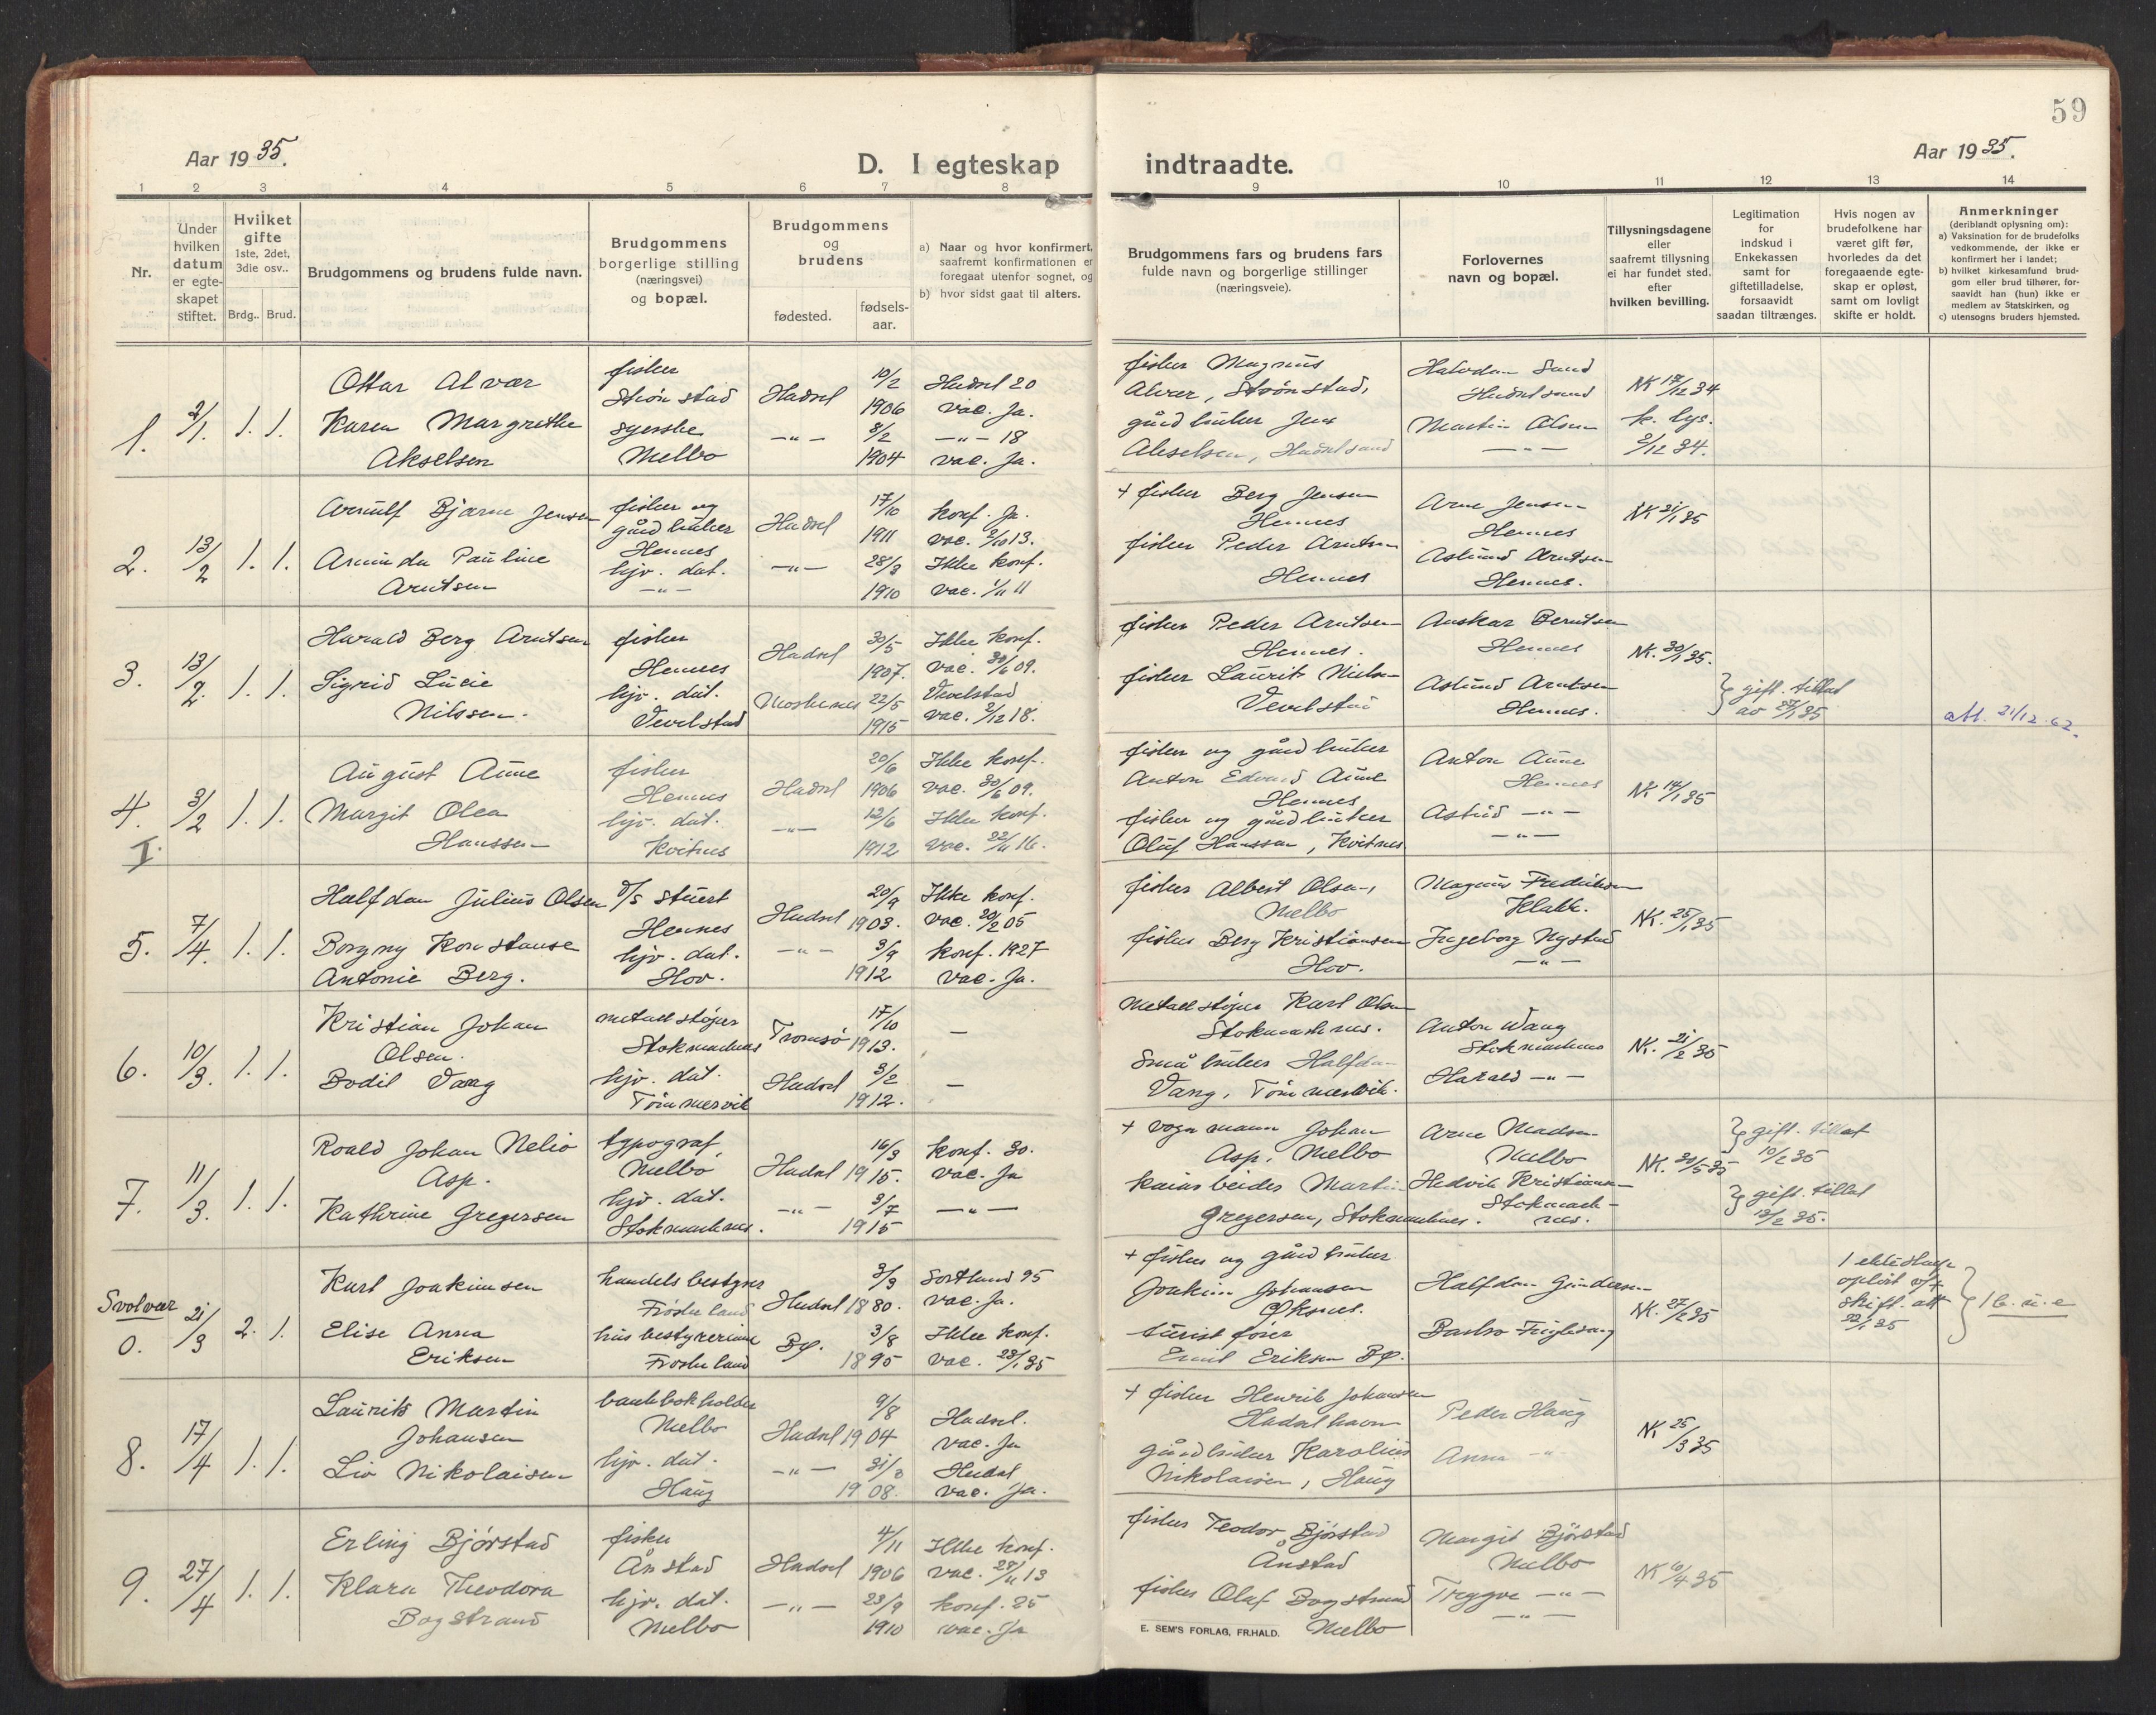 59
Aar 1935.
D. I egteskap indtraadte.
Aar 1935.
1 2 3 4 5 6 7 8 9 10 11 12 13 14
Nr.
Under hvilken datum er egte-skapet stiftet.
Hvilket gifte 1ste, 2det, 3die osv..
Brdg.. Brud.
Brudgommens og brudens fulde navn.
Brudgommens borgerlige stilling (næringsvei) og bopæl.
Brudgommens og brudens
fødested.
fødsels-aar.
a) Naar og hvor konfirmert, saafremt konfirmationen er foregaat utenfor sognet, og
b) hvor sidst gaat til alters.
Brudgommens fars og brudens fars fulde navn og borgerlige stillinger (næringsveie).
Forlovernes navn og bopæl.
Tillysningsdagene eller saafremt tillysning ei har fundet sted, efter hvilken bevilling.
Legitimation for indskud i Enkekassen samt for giftetilladelse, forsaavidt saadan tiltrænges.
Hvis nogen av brudefolkene har været gift før, hvorledes da det foregaaende egte-skap er opløst, samt om lovligt skifte er holdt.
Anmerkninger
(deriblandt oplysning om):
a) Vaksination for de brudefolks vedkommende, der ikke er konfirmert her i landet;
b) hvilket kirkesamfund brud-gom eller brud tilhører, for-saavidt han (hun) ikke er medlem av Statskirken, og
c) utensogns bruders hjemsted.
1. 2/1. 1. 1.
Ottar Alvær
Karen Margrethe
Akselsen
fisker
Strønstad
syerske
Melbo
Hadsel
—"—
10/2
1906
8/2
1904
Hadsel 20
vac. Ja.
—"— 18
vac. Ja.
fisker Magnus
Alvær, Strønstad,
gårdbruker Jens
Akselsen, Hadselsand
Halvdan Sand
Hadselsand
Martin Olsen
—"—
NK 17/12 34
k. lys.
2/12 34.
2. 13/2 1. 1.
Arnulf Bjarne Jensen
Arminda Pauline
Arntsen
fisker og
gårdbruker
Hennes
hjv. dat.
—"—
Hadsel
—"—
17/10
1911
28/3
1910
konf. Ja.
vac. 2/10 13.
Ikke konf.
vac. 1/11 11
+ fisker Berg Jensen
Hennes
fisker Peder Arntsen
Hennes
Arne Jensen
Hennes
Aslaud Arntsen
Hennes.
NK 21/1 35
3. 13/2 1. 1.
Harald Berg Arntsen
Sigrid Lucie
Nilssen.
fisker
Hennes
hjv. dat.
Vevelstad
Hadsel
Moskenes
30/5
1907.
22/5
1915
Ikke konf.
vac. 30/6 09.
Vevelstad
vac. 2/12 18.
fisker Peder Arntsen
Hennes.
fisker Laurits Nielsen
Vevelstad
Anskar Berntsen
Hennes
Aslaud Arntsen
Hennes.
NK. 30/1 35.
gift. tillat
av 27/1 35
att. 21/12.62.
4. 3/2 1. 1.
I.
August Aune
Margit Olea
Hanssen
fisker
Hennes
hjv. dat.
Kvitnes
Hadsel
—"—
20/6
1906
12/6
1912
Ikke konf.
vac. 30/6 09.
Ikke konf.
vac. 22/11 16.
fisker og gårdbruker
Anton Edvard Aune
Hennes
fisker og gårdbruker
Oluf Hanssen, Kvitnes
Anton Aune
Hennes
Astrid —"—
—"—
NK 14/1 35
5. 7/4. 1. 1.
Halfdan Julius Olsen
Borgny Konstanse
Antonie Berg.
D/S stuert
Hennes
hjv. dat.
Hov.
Hadsel
—"—
20/9
1903.
3/9
1912
Ikke konf.
vac. 20/2 05
konf. 1927
vac. Ja.
fisker Albert Olsen,
Melbo
fisker Berg Kristiansen
Hov.
Magnus Fredriksen
Klakk.
Ingeborg Nystad
—"—
NK. 25/1 35
6. 10/3. 1. 1.
Kristian Johan
Olsen.
Bodil Vang
metallstøper
Stokmarknes
hjv. dat.
Tømmervik
Tromsø
Hadsel
17/10
1913.
3/2
1912.
—
—
Metallstøper Karl Olsen
Stokmarknes.
Småbruker Halfdan
Vang, Tømmervik.
Anton Wang
Stokmarknes
Harald —"—
NK. 21/2 35
7. 11/3. 1. 1.
Roald Johan Nelio
Asp.
Kathrine Gregersen
typograf,
Melbo
hjv. dat.
Stokmarknes.
Hadsel
—"—
16/3
1915.
3/7
1915
konf. 30.
vac. Ja
—"—
+ vognmann Johan
Asp. Melbo
kaiarbeider Martin
Gregersen, Stokmarknes.
Arne Madsen
Melbo
Hedvik Kristiansen
Stokmark-
nes.
NK. 30/5 35
gift. tillat
19/2 35
gift. tillat
13/2 35.
Svolvær
0. 21/3 2. 1.
Karl Joakimsen
Elise Anna
Eriksen
handelsbestyrer
Frøskeland
husbestyrerinne
Frøskeland
Hadsel
Bø.
3/3
1880.
3/8
1895
Sortland 95
vac. Ja.
Ikke konf.
vac. 23/1 35
+ fisker og gårdbruker
Joakim Johansen
Øksnes.
turistfører
Emil Eriksen Bø.
Halfdan Gundersen
NK. 27/2 35
1 ekteskap
opløst v/+
skift. att
22/1 35
1 b. u. e
8. 17/4 1. 1.
Laurits Martin
Johansen
Liv Nikolaisen
bankbokholder
Melbo
hjv. dat.
Haug
Hadsel
—"—
9/8
1904
31/3
1908.
Hadsel.
vac. Ja
Hadsel
vac. Ja.
+ fisker Henrik Johansen
Hadselhavn
gårdbruker Karolius
Nikolaisen, Haug
Peder Haug
Anna —"—
NK 25/3 35
9. 27/4 1. 1.
Erling Bjørstad
Klara Theodora
Bogstrand
fisker
Ånstad
hjv. dat.
Melbo
Hadsel
—"—
4/11
1906
23/9
1910
Ikke konf.
vac. 28/11 13
konf. 25
vac. Ja
fisker Teodor Bjørstad
Ånstad
fisker Olaf Bogstrand
Melbo
Margit Bjørstad
Melbo
Trygve —"—
—"—
NK 10/4 35
E. SEM'S FORLAG, FR.HALD.